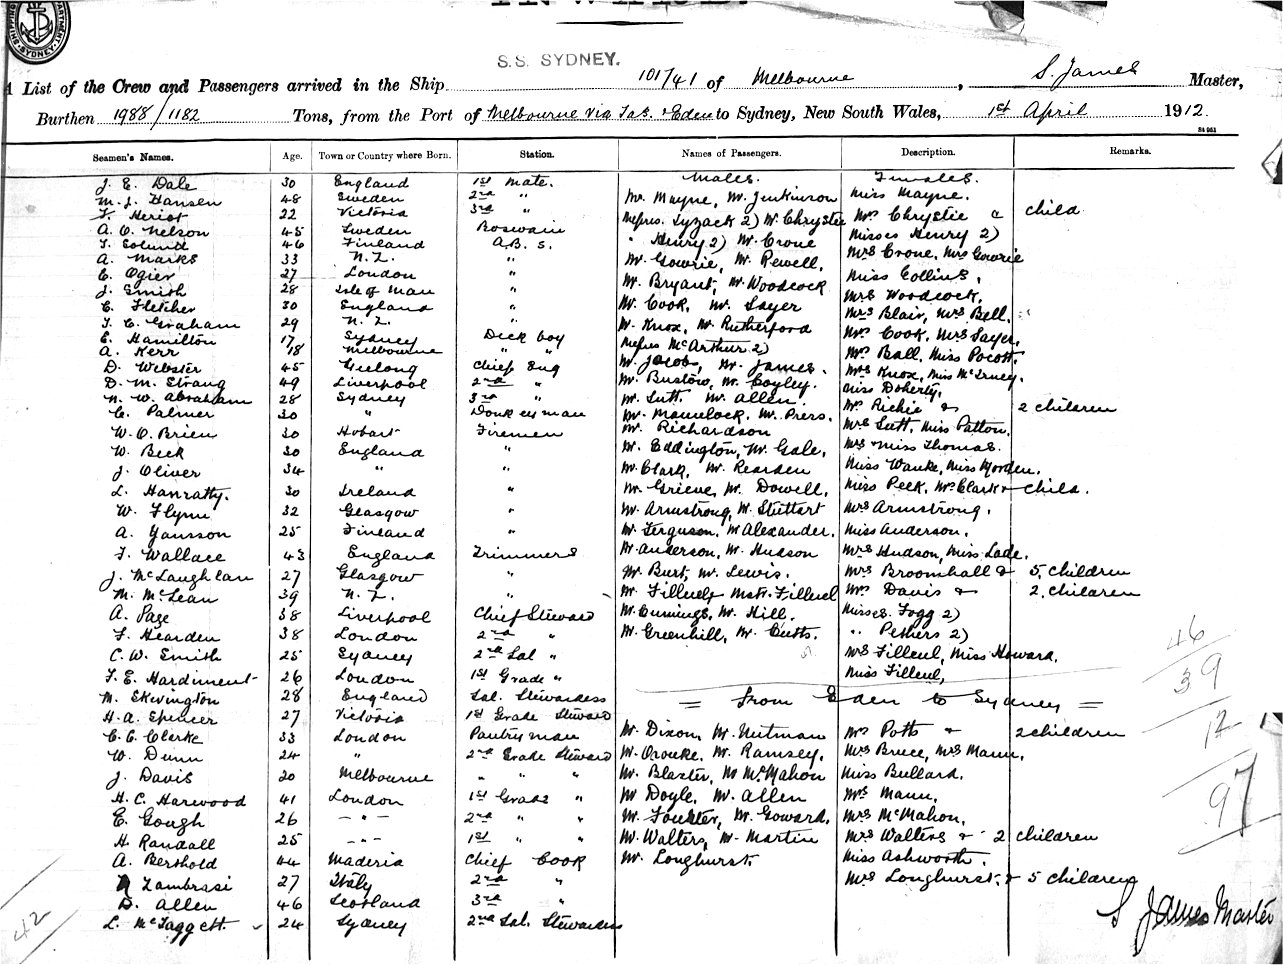 SHIPPING DEPARTMENT SYDNEY
INWARD.
S.S. SYDNEY.
A List of the Crew and Passengers arrived in the Ship 101/41 of Melbourne, S. James Master,
Burthen 1988/1182 Tons, from the Port of Melbourne via Tas. & Eden to Sydney, New South Wales, 1st April 1912.
Seamen's Names. Age. Town or Country where Born. Station. Names of Passengers. Description. Remarks.
Males. Females.
J. E. Dale 30 England 1st Mate.
M. J. Hansen 48 Sweden 2nd " Mr Mayne, Mr. Jenkinson Miss Mayne.
F. Heriot 22 Victoria 3rd " Messrs. Lyzack 2) Mr Chrystie Mrs Chrystie & child
A. O. Nelson 45 Sweden Boswain " Henry 2) Mr Crone Misses Henry 2)
46 Finland A.B.s. Mr Gowrie, Mr Rewell, Mrs Crone, Mrs Gowrie
A. Marks 33 N.Z. " Mr Bryant, Mr Woodcock Miss Collins,
C. Ogier 27 London " Mr Cook, Mr Sayer Mrs Woodcock,
J. Smith 28 Isle of Man " Mr Knox, Mr Rutherford Mrs Blair, Mrs Bell.
C. Fletcher 30 England " Messrs McArthur 2) Mrs Cook, Mrs Sayer,
T. C. Graham 29 N.Z. " Mr Jacob, Mr. James. Mrs Ball, Miss Pocott.
E. Hamilton 17 Sydney Deck boy Mr Bustow, Mr Coyley. Mrs Knox,
A. Kerr 18 Melbourne " " Mr Sutt. Mr Allen. Miss Doherty,
D. Webster 45 Geelong Chief Eng Mr. Prers. Mrs Richie & 2 children
D. M. Strang 49 Liverpool 2nd " Mr Richardson Mrs Sutt, Miss Patton,
N. W. Abraham 28 Sydney 3rd " Mr Eddington, Mr Gale, Mrs & Miss Thomas.
C. Palmer 30 " Donkeyman Mr Clark, Mr Rearden Miss Wauke, Miss Morden.
W. O. Brien 30 Hobart Firemen Mr Grieve, Mr. Dowell, Miss Peek, Mrs Clark & child.
W. Beck 30 England " Mr Armstrong, Mr Stuttart Mrs Armstrong,
J. Oliver 34 " " Mr Ferguson, Mr Alexander, Miss Anderson,
L. Hanratty. 30 Ireland " Mr Anderson, Mr Hudson Mrs Hudson, Miss Lade.
W. Flynn 32 Glasgow " Mr Burt, Mr. Lewis. Mrs Broomhall & 5, children
A. Yansson 25 Finland " Mr Filleul & Mstr. Filleul Mrs Davis & 2, children
F. Wallace 43 England Trimmers Mr Cummings, Mr Hill. Misses. Fogg 2)
J. McLaughlan 27 Glasgow " Mr Greenhill, Mr Cutts. " Pethers 2)
M. McLean 39 N.Z. " Mrs Filleul, Miss Howard,
A. Page 38 Liverpool Chief Steward Miss Filleul,
F. Hearden 38 London 2nd "
C. W. Smith 25 Sydney 2nd Sal "
F. E. Hardiment 26 London 1st Grade "
M. Skevington 28 England Sal. Stewardess = From Eden to Sydney =
H. A. Spencer 27 Victoria 1st Grade Steward
C. C. Clerke 33 London Pantryman Mr Dixon, Mr Nutman Mrs Potts & 2 children
W. Dunn 24 " 2nd Grade Steward Mr Orouke. Mr Ramsey, Mrs Bruce, Mrs Mann,
J. Davis 20 Melbourne " " " Mr Blaster, Mr McMahon Miss Bullard,
H. C. Harwood 41 London 1st Grade " Mr Doyle, Mr. Allen Mrs Mann,
E. Gough 26 - " - 2nd " " Mr. Goward, Mrs McMahon,
H. Randall 25 - " - 1st " " Mr Walters, Mr Martin Mrs Walters & 2 children
A. Berthold 44 Maderia Chief Cook Mr Longhurst Miss Ashworth.
Zambrasi 27 Italy 2nd " Mrs Longhurst, & 5 children
D. Allen 46 Scotland 3rd "
L. McTaggett. 24 Sydney 2nd Sal. Stewardess
42
46
39
12
97
S James Master